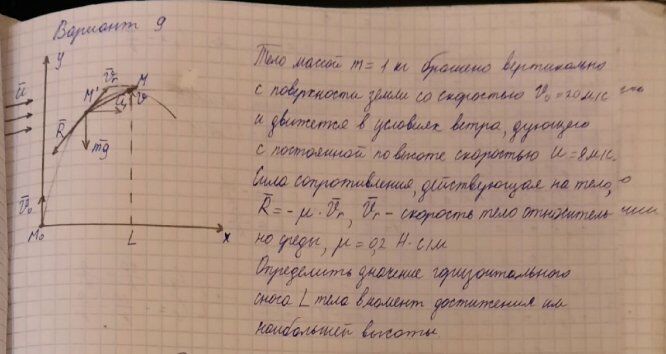 Вариант 9
y
ū
V̄r
M
M'
ū
v̄
R̄
mḡ
V̄₀
M₀
L
x
Тело массой m = 1 кг брошено вертикально
с поверхности земли со скоростью V₀ = 20 м/с
и движется в условиях ветра, дующего
с постоянной по высоте скоростью U = 8 м/с.
Сила сопротивления, действующая на тело,
R̄ = -μ · V̄r, V̄r - скорость тело относитель
но среды, μ = 0,2 Н·с/м
Определить значение горизонтального
сноса L тела в момент достижения им
наибольшей высоты.